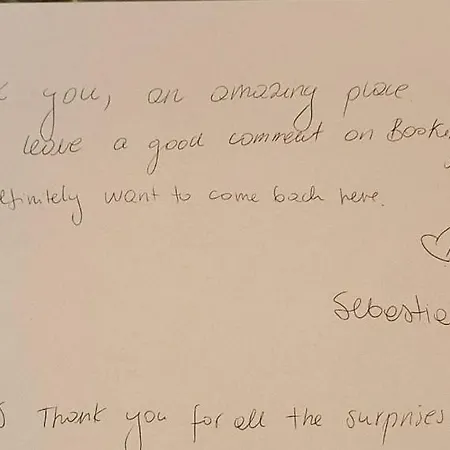 you, an amazing place.
leave a good comment on Booki
efinitely want to come back here.
Sebastie
S Thank you for all the surprises